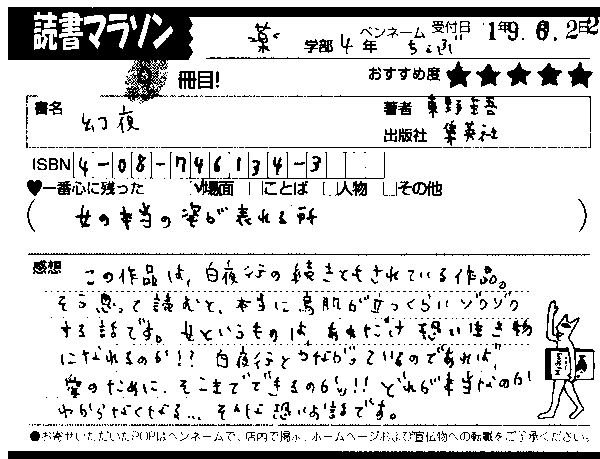 読書マラソン
薬 学部 4 年 ペンネーム ちょぶ 受付日 19.6.22
冊目! おすすめ度 ★★★★★
書名 幻夜 著者 東野圭吾
出版社 集英社
ISBN 4-08-746134-3
♥一番心に残った ✓場面 □ことば □人物 □その他
(女の本当の姿が表れる所)
感想 この作品は、白夜行の続きともされている作品。
そう思って読むと、本当に鳥肌が立つくらいゾクゾク
する話です。女というものは、あれだけ恐い生き物
になれるのか!! 白夜行とつながっているのであれば、
愛のために、そこまでできるのか!! どれが本当なのか
わからなくなる… そんな恐いお話です。
●お寄せいただいたPOPはペンネームで、店内で掲示、ホームページおよび宣伝物への転載をご了承ください。